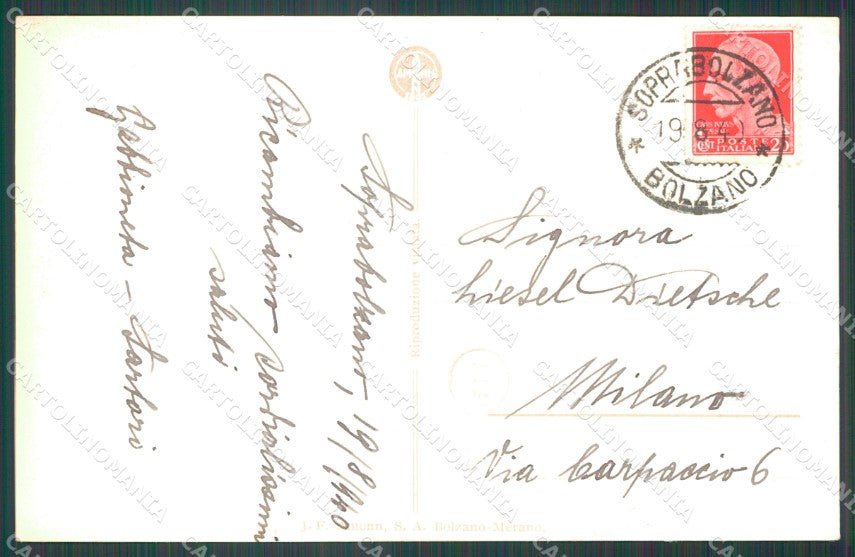 Soprabolzano, 19/8/940
Ricambiamo cordialissimi
saluti
- Sartori
Signora
Liesel Dietsche
Milano
Via Carpaccio 6
SOPRABOLZANO
19.8.4
BOLZANO
POSTE
ITALIANE
CENT 20
Riproduzione vietata
J. F. Amonn, S. A. Bolzano-Merano.
CARTOLINOMANIA